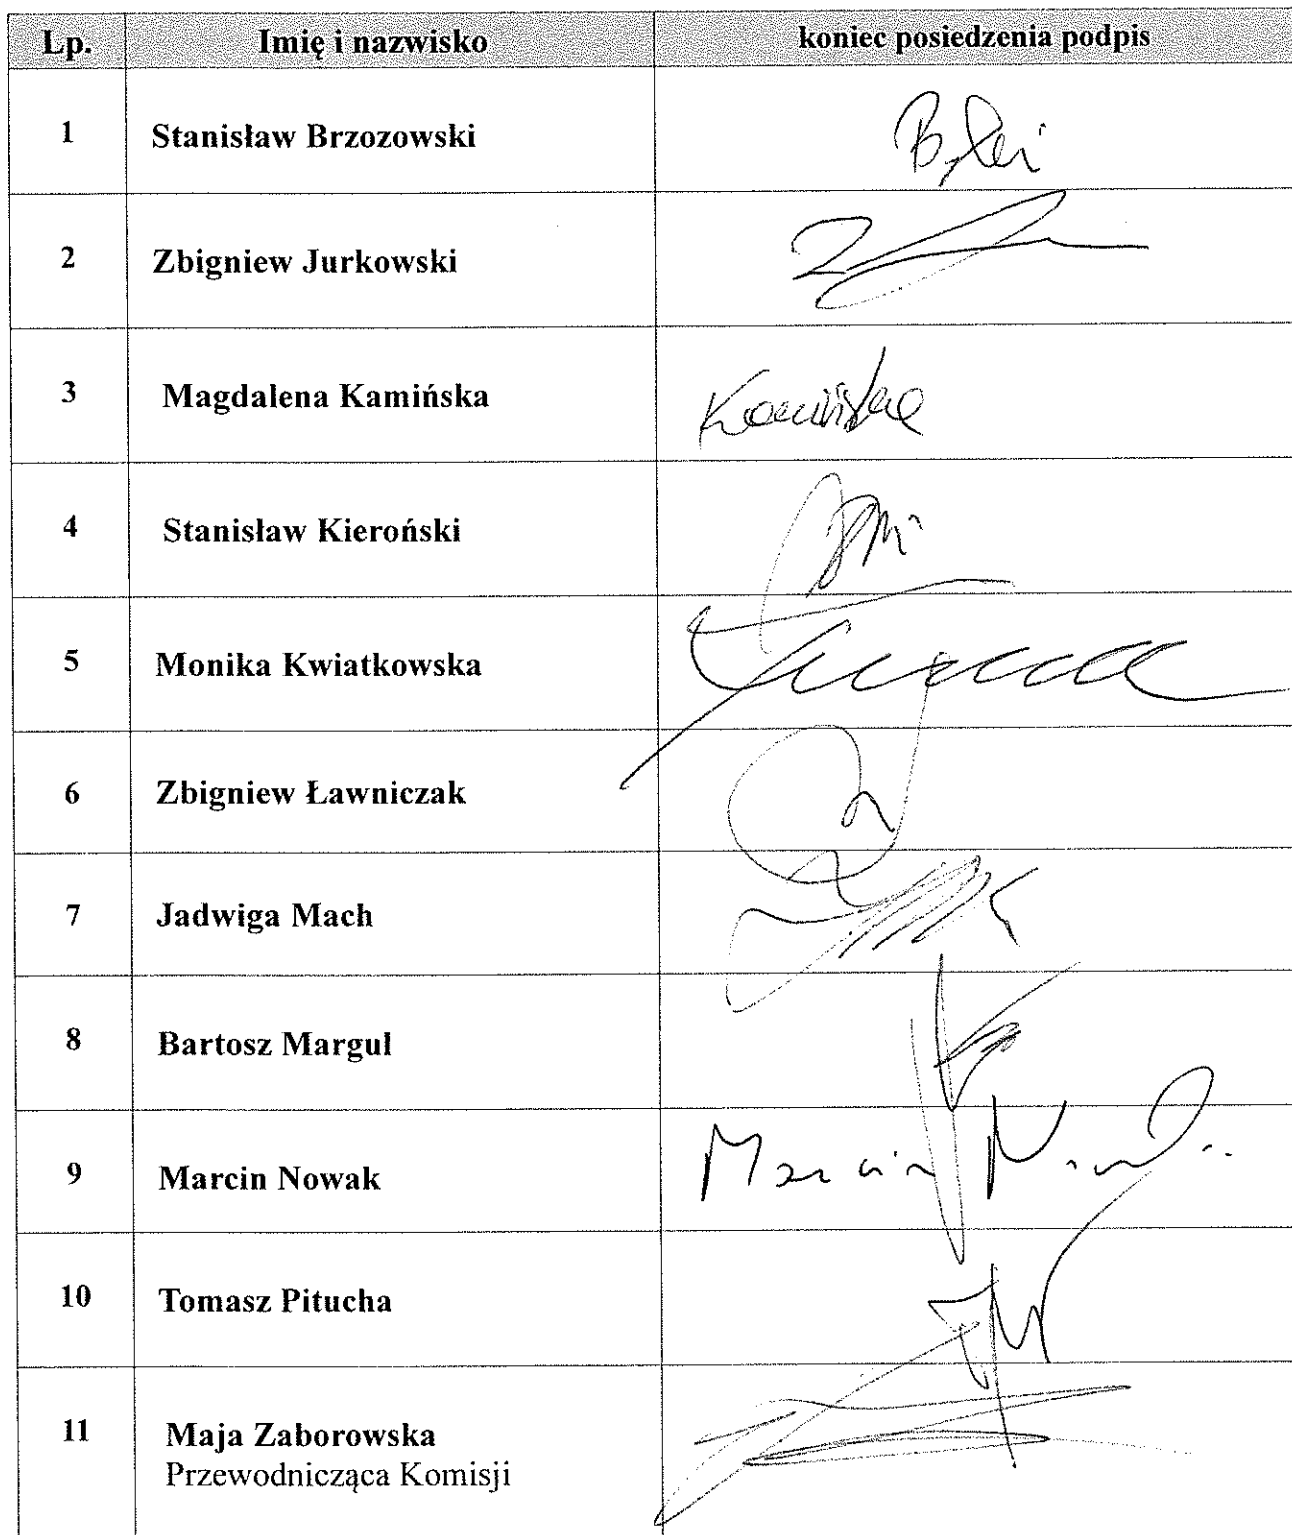 Lp. Imię i nazwisko koniec posiedzenia podpis
1 Stanisław Brzozowski
2 Zbigniew Jurkowski
3 Magdalena Kamińska Kamińska
4 Stanisław Kieroński
5 Monika Kwiatkowska
6 Zbigniew Ławniczak
7 Jadwiga Mach
8 Bartosz Margul
9 Marcin Nowak Marcin
10 Tomasz Pitucha
11 Maja Zaborowska
Przewodnicząca Komisji